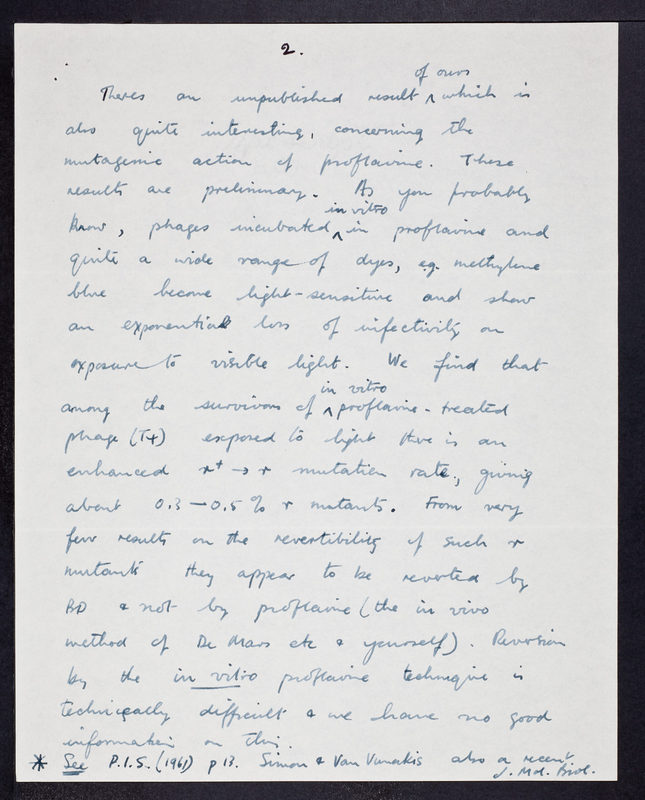 2.
of ours
Theres an unpublished result ^ which is
also quite interesting, concerning the
mutagenic action of proflavine. These
results are preliminary. As you probably
in vitro
know, phages incubated ^ in proflavine and
quite a wide range of dyes, eg. methylene
blue become light-sensitive and show
an exponential loss of infectivity on
exposure to visible light. We find that
in vitro
among the survivors of ^ proflavine-treated
phage (T4) exposed to light there is an
enhanced r+ → r mutation rate, giving
about 0.3 — 0.5 % r mutants. From very
few results on the revertibility of such r
mutants they appear to be reverted by
BD & not by proflavine (the in vivo
method of De Mars etc & yourself). Reversion
by the in vitro proflavine technique is
technically difficult & we have no good
information on this.
* See P.I.S. (1961) p 13. Simon & Van Vunakis also a recent
J. Mol. Biol.